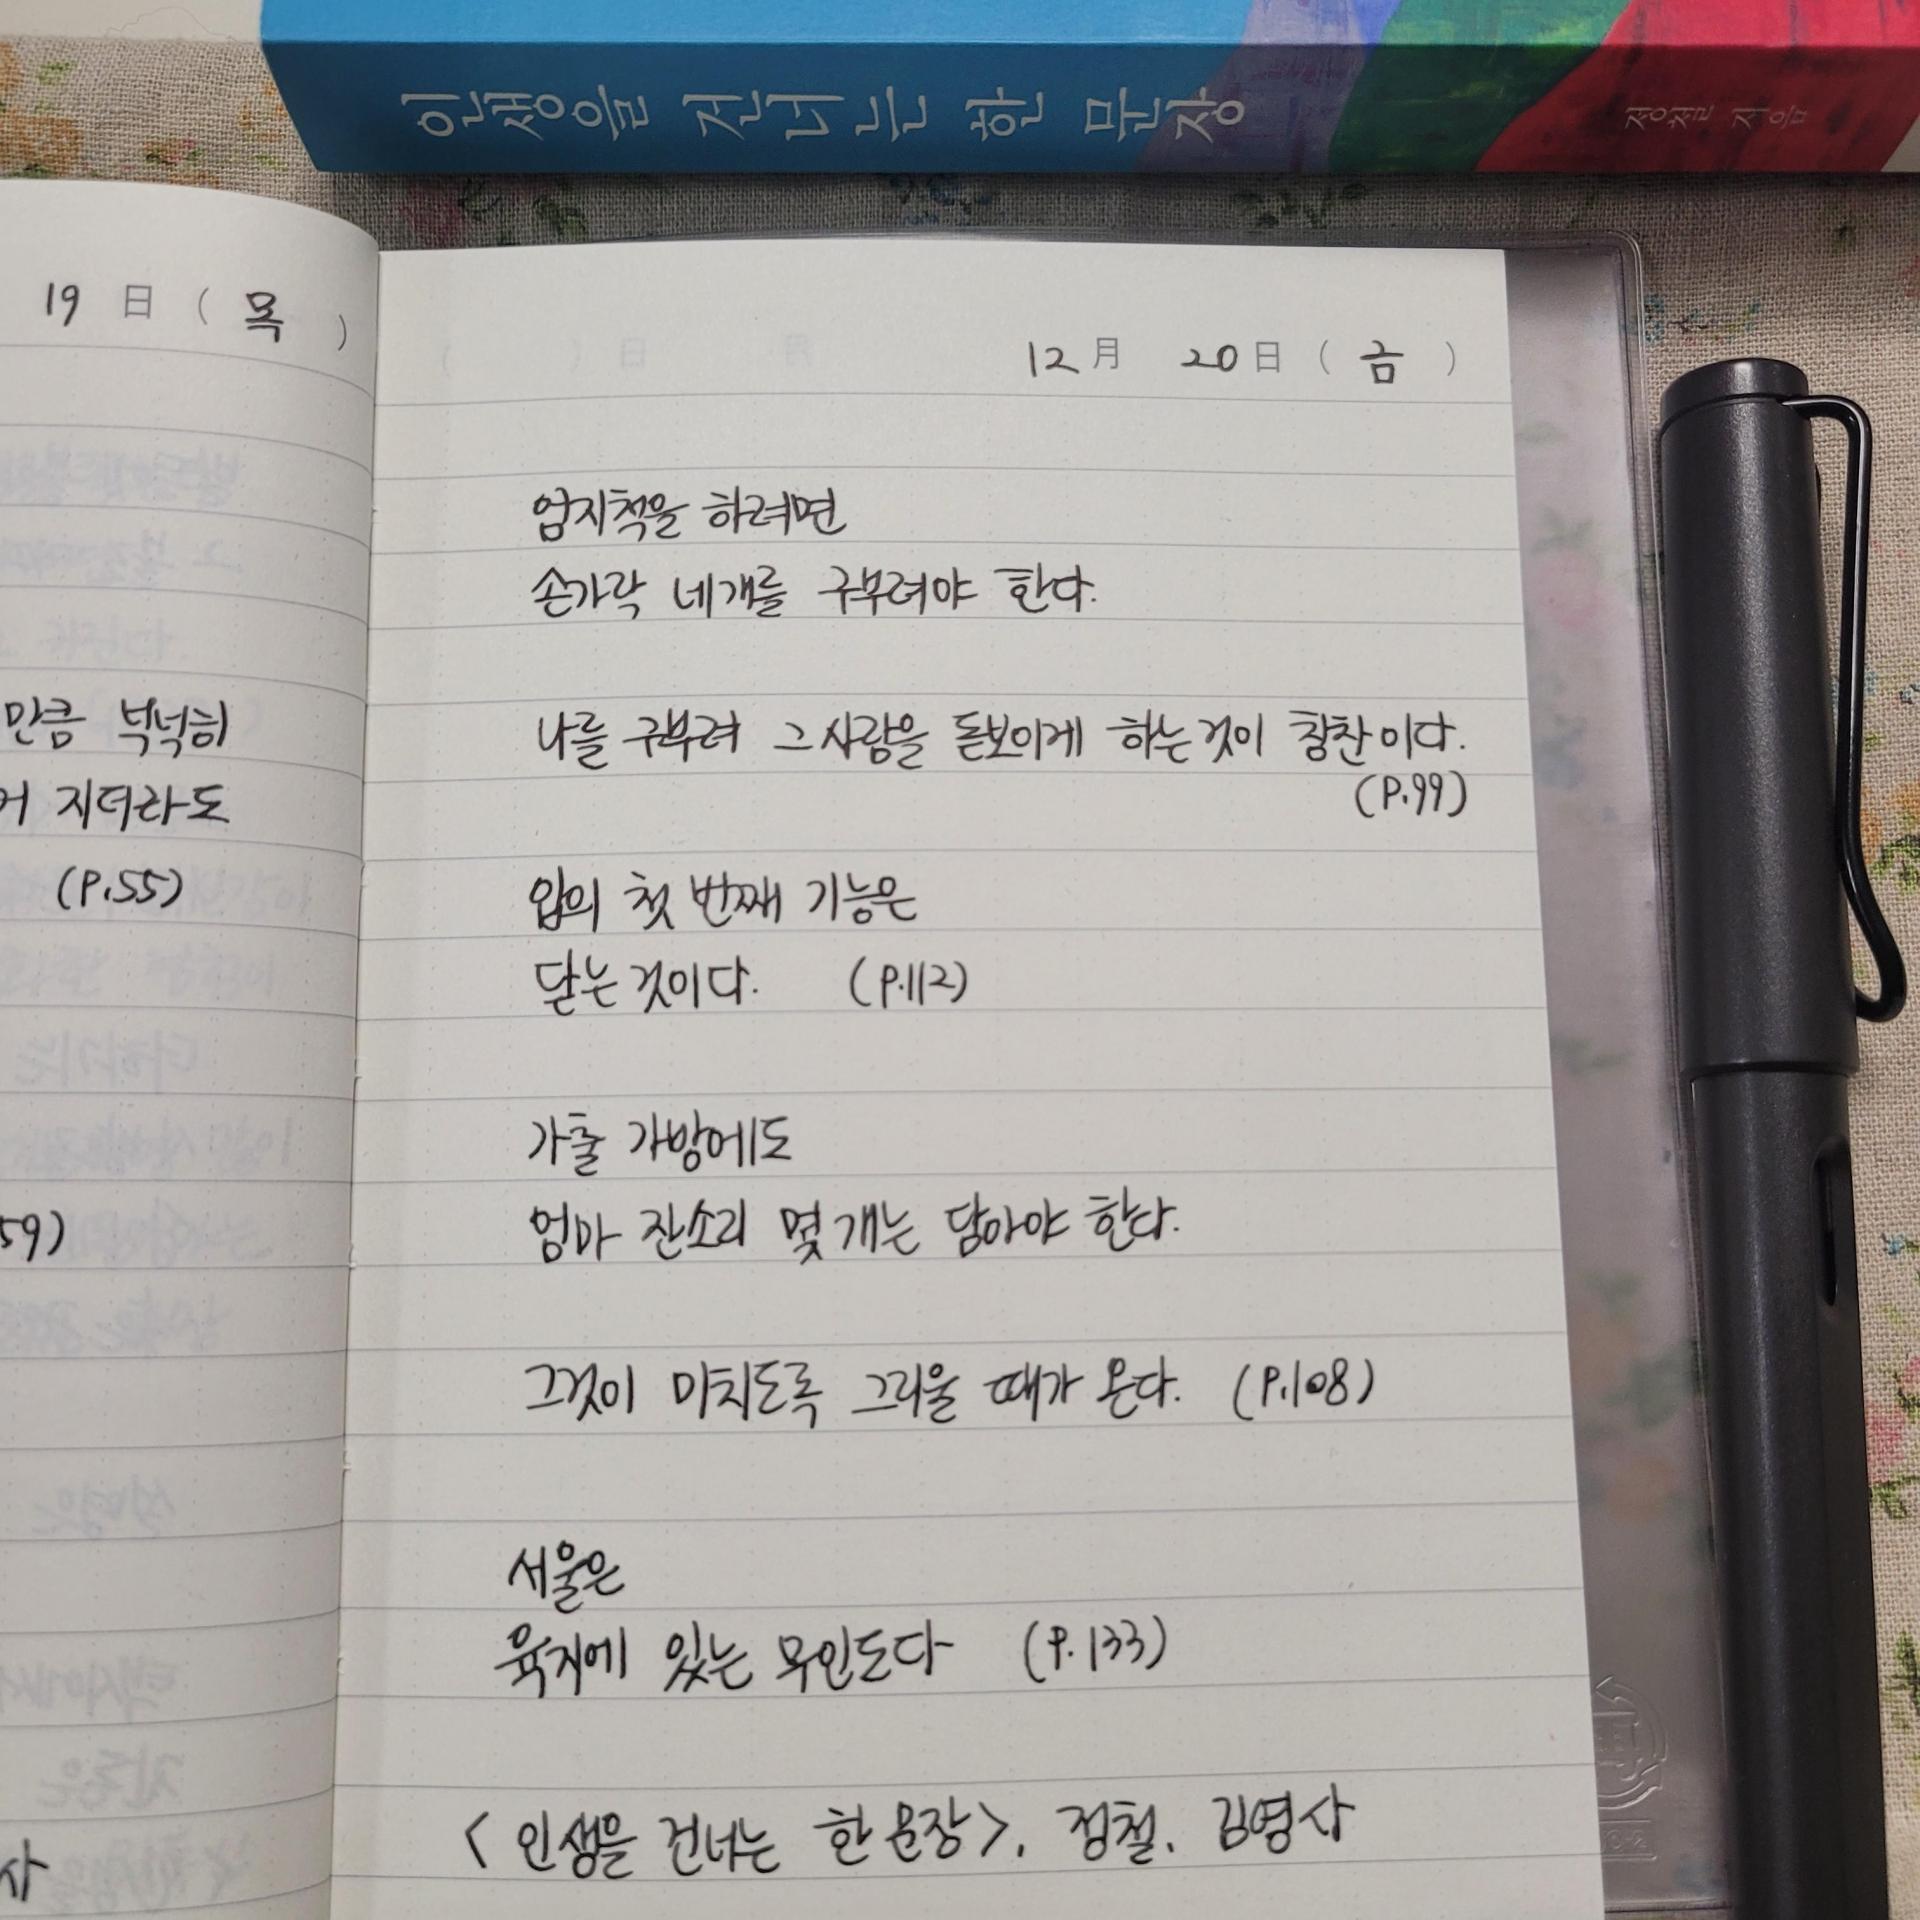 인생을 건너는 한 문장
정철 지음
19 日 ( 목 )
만큼 넉넉히
지더라도
(P.55)
59)
사
12 月 20 日 ( 금 )
엄지척을 하려면
손가락 네개를 구부려야 한다.
나를 구부려 그 사람을 돋보이게 하는것이 칭찬이다.
(P.99)
입의 첫 번째 기능은
닫는 것이다. (P.112)
가출 가방에도
엄마 잔소리 몇 개는 담아야 한다.
그것이 미치도록 그리울 때가 온다. (P.108)
서울은
육지에 있는 무인도다 (P.133)
< 인생을 건너는 한 문장>, 정철, 김영사